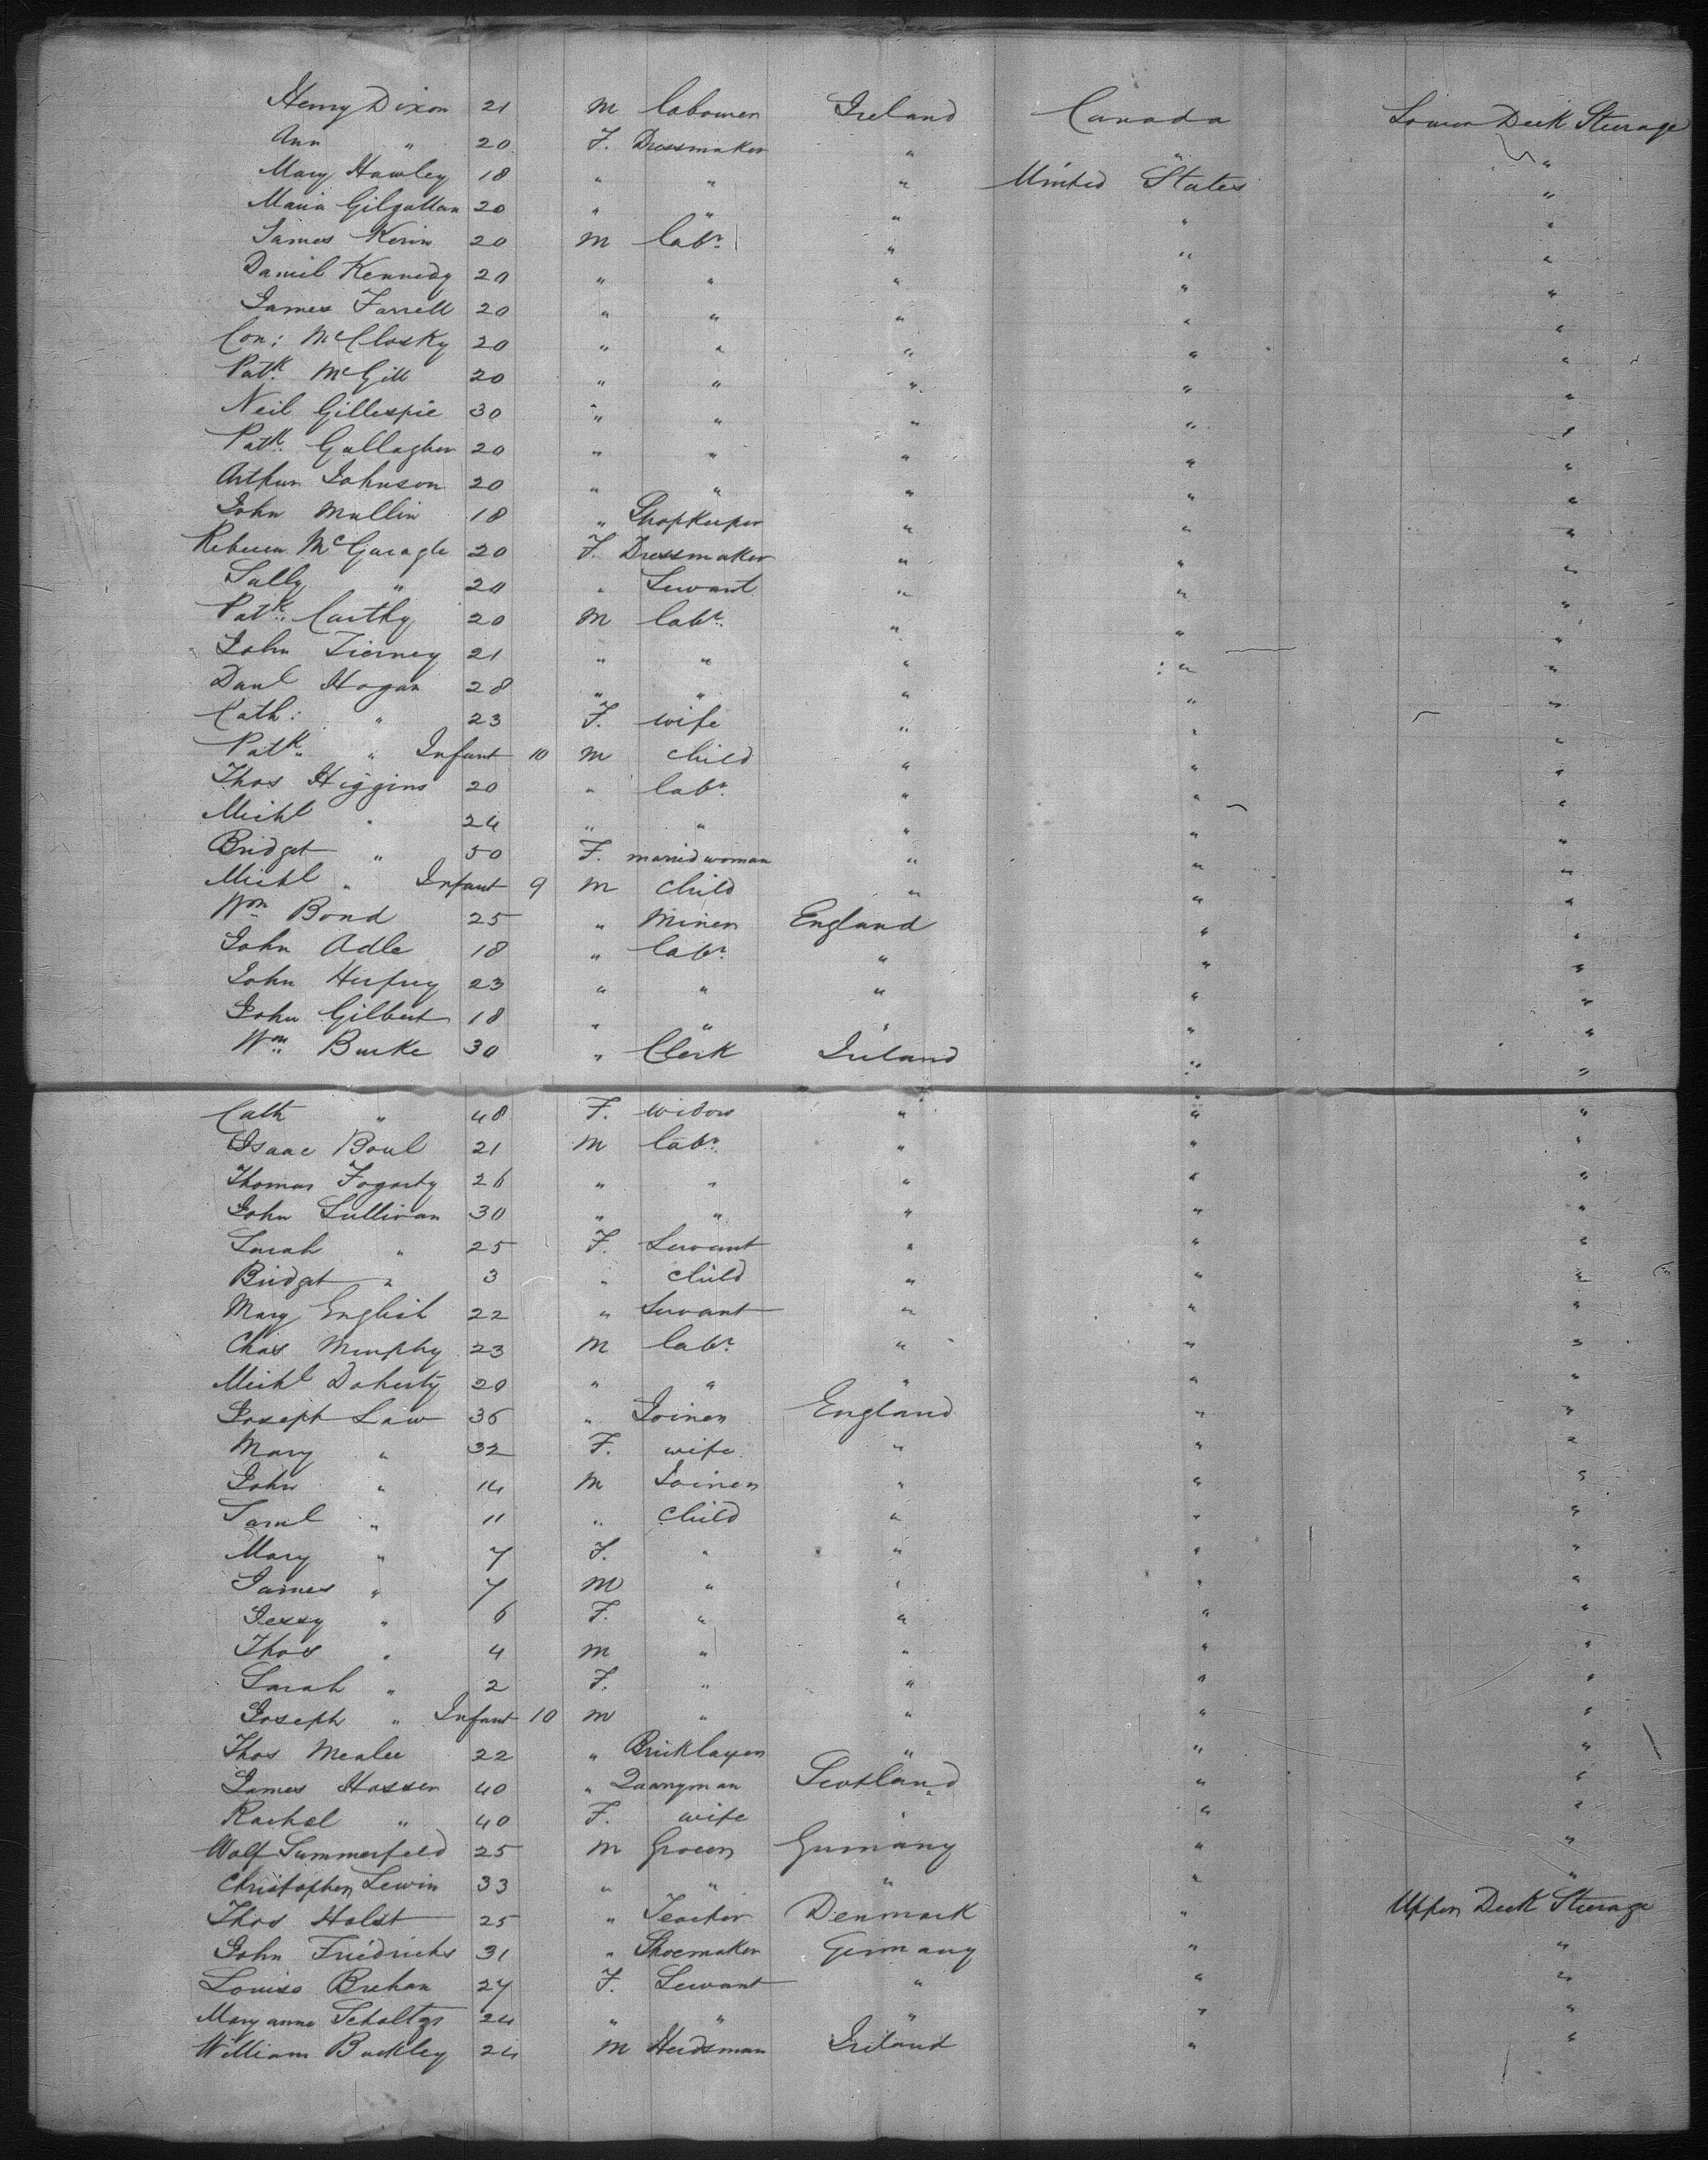 Henry Dixon 21 M labourer Ireland Canada Lower Deck Steerage
Ann " 20 F. Dressmaker " " "
Mary Hawley 18 " " " United States "
Maria Gilgallan 20 " " " " "
James Kerin 20 M labr. " " "
Daniel Kennedy 20 " " " " "
James Farrell 20 " " " " "
Con: McClosky 20 " " " " "
Patk. McGill 20 " " " " "
Neil Gillespie 30 " " " " "
Patk. Gallagher 20 " " " " "
Arthur Johnson 20 " " " " "
John Mullin 18 " Shopkeeper " " "
Rebecca McGaragle 20 F. Dressmaker " " "
Sally " 20 " Servant " " "
Patk. Carthy 20 M labr. " " "
John Tierney 21 " " " " "
Danl Hogan 28 " " " " "
Cath: " 23 F. wife " " "
Patk. " Infant 10 M child " " "
Thos Higgins 20 " labr. " " "
Michl " 24 " " " " "
Bridget " 50 F. married woman " " "
Michl " Infant 9 M child " " "
Wm Bond 25 " Miner England " "
John Adle 18 " labr. " " "
John Herfrey 23 " " " " "
John Gilbert 18 " " " " "
Wm. Burke 30 " Clerk Ireland " "
Cath " 48 F. widow " " "
Isaac Boul 21 M labr. " " "
Thomas Fogarty 26 " " " " "
John Sullivan 30 " " " " "
Sarah " 25 F. Servant " " "
Bridget " 3 " child " " "
Mary English 22 " Servant " " "
Chas Murphy 23 M labr. " " "
Michl Doherty 20 " " " " "
Joseph Law 36 " Joiner England " "
Mary " 32 F. wife " " "
John " 14 M Joiner " " "
Saml " 11 " child " " "
Mary " 7 F. " " " "
James " 7 M " " " "
Jessy " 6 F. " " " "
Thos " 4 M " " " "
Sarah " 2 F. " " " "
Joseph " Infant 10 M " " " "
Thos Mealee 22 " Bricklayer " " "
James Hossen 40 " Quarryman Scotland " "
Rachel " 40 F. wife " " "
Wolf Summerfeld 25 M Grocer Germany " "
Christopher Lewin 33 " " " " "
Thos Holst 25 " Teacher Denmark " Upper Deck Steerage
John Fridrichs 31 " Shoemaker Germany " "
Louisa Brehan 27 F. Servant " " "
Mary anne Scholtzs 24 " " " " "
William Buckley 24 M Herdsman Ireland " "